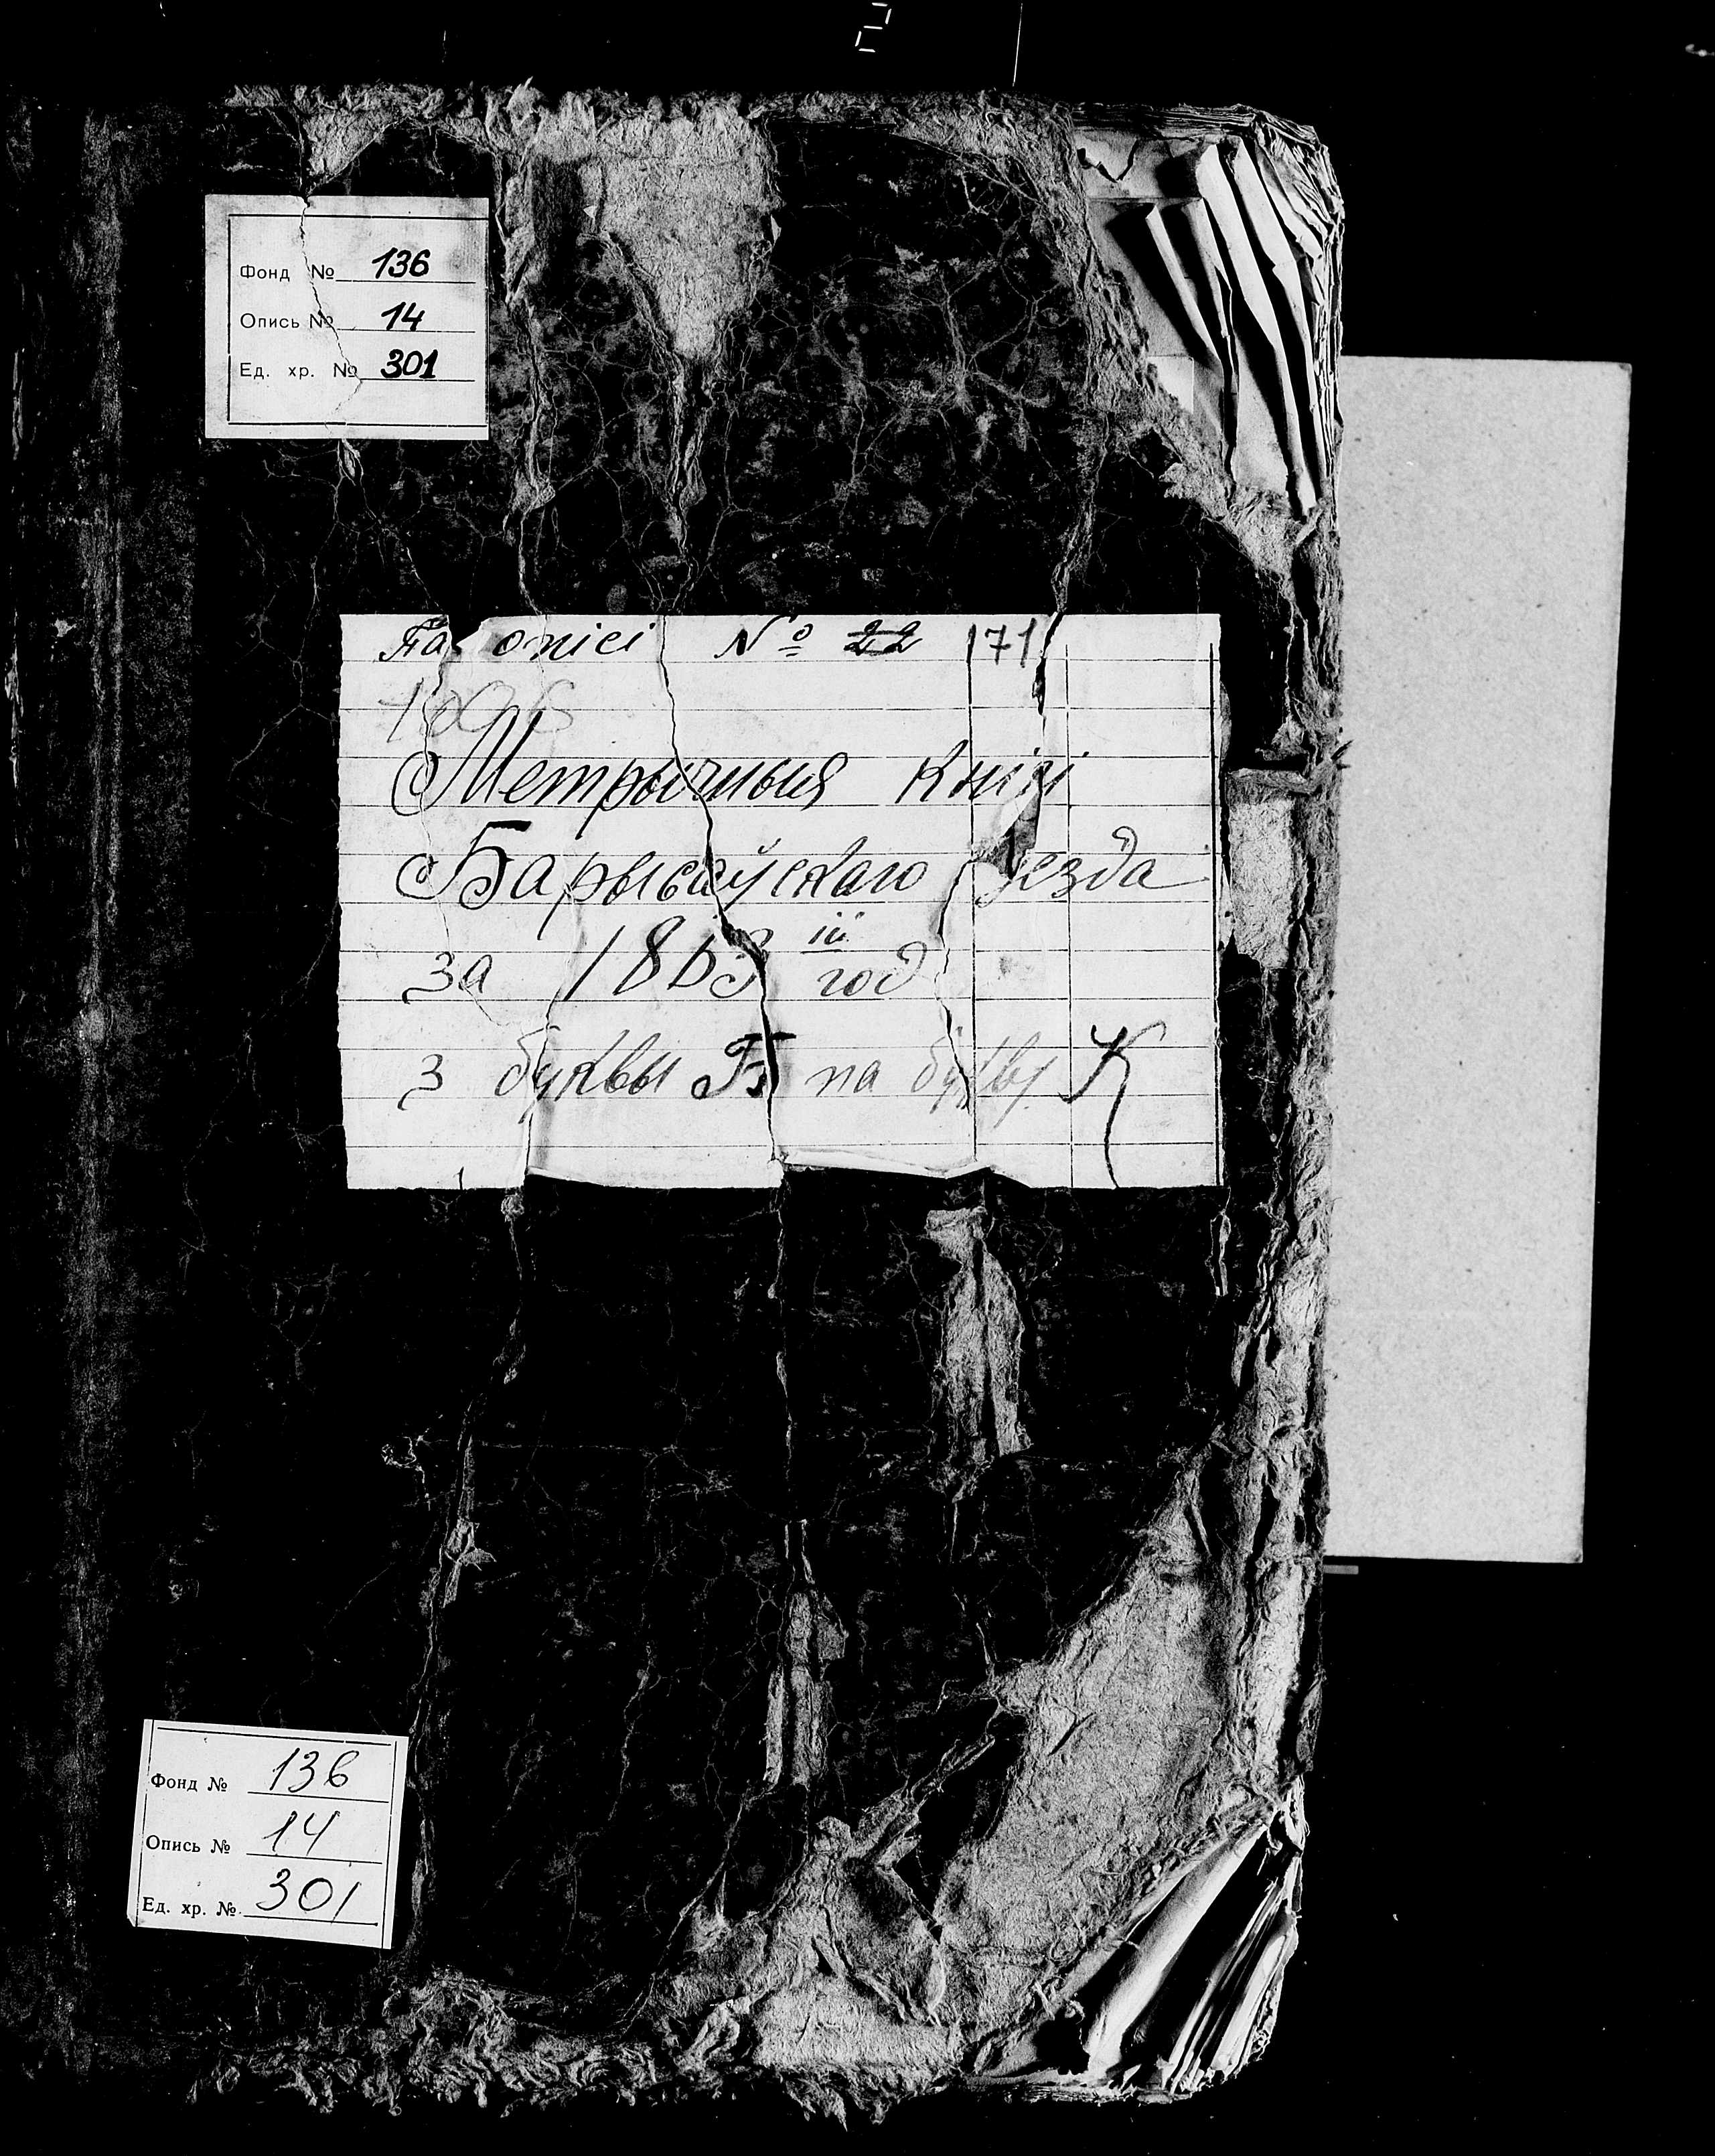 2
Фонд № 136
Опись № 14
Ед. хр. № 301
Па опісі № 22 171
Метрычныя кнігі
Барысаўскаго уезда
за 1863 ій год
з буквы Б па букву К
Фонд № 136
Опись № 14
Ед. хр. № 301